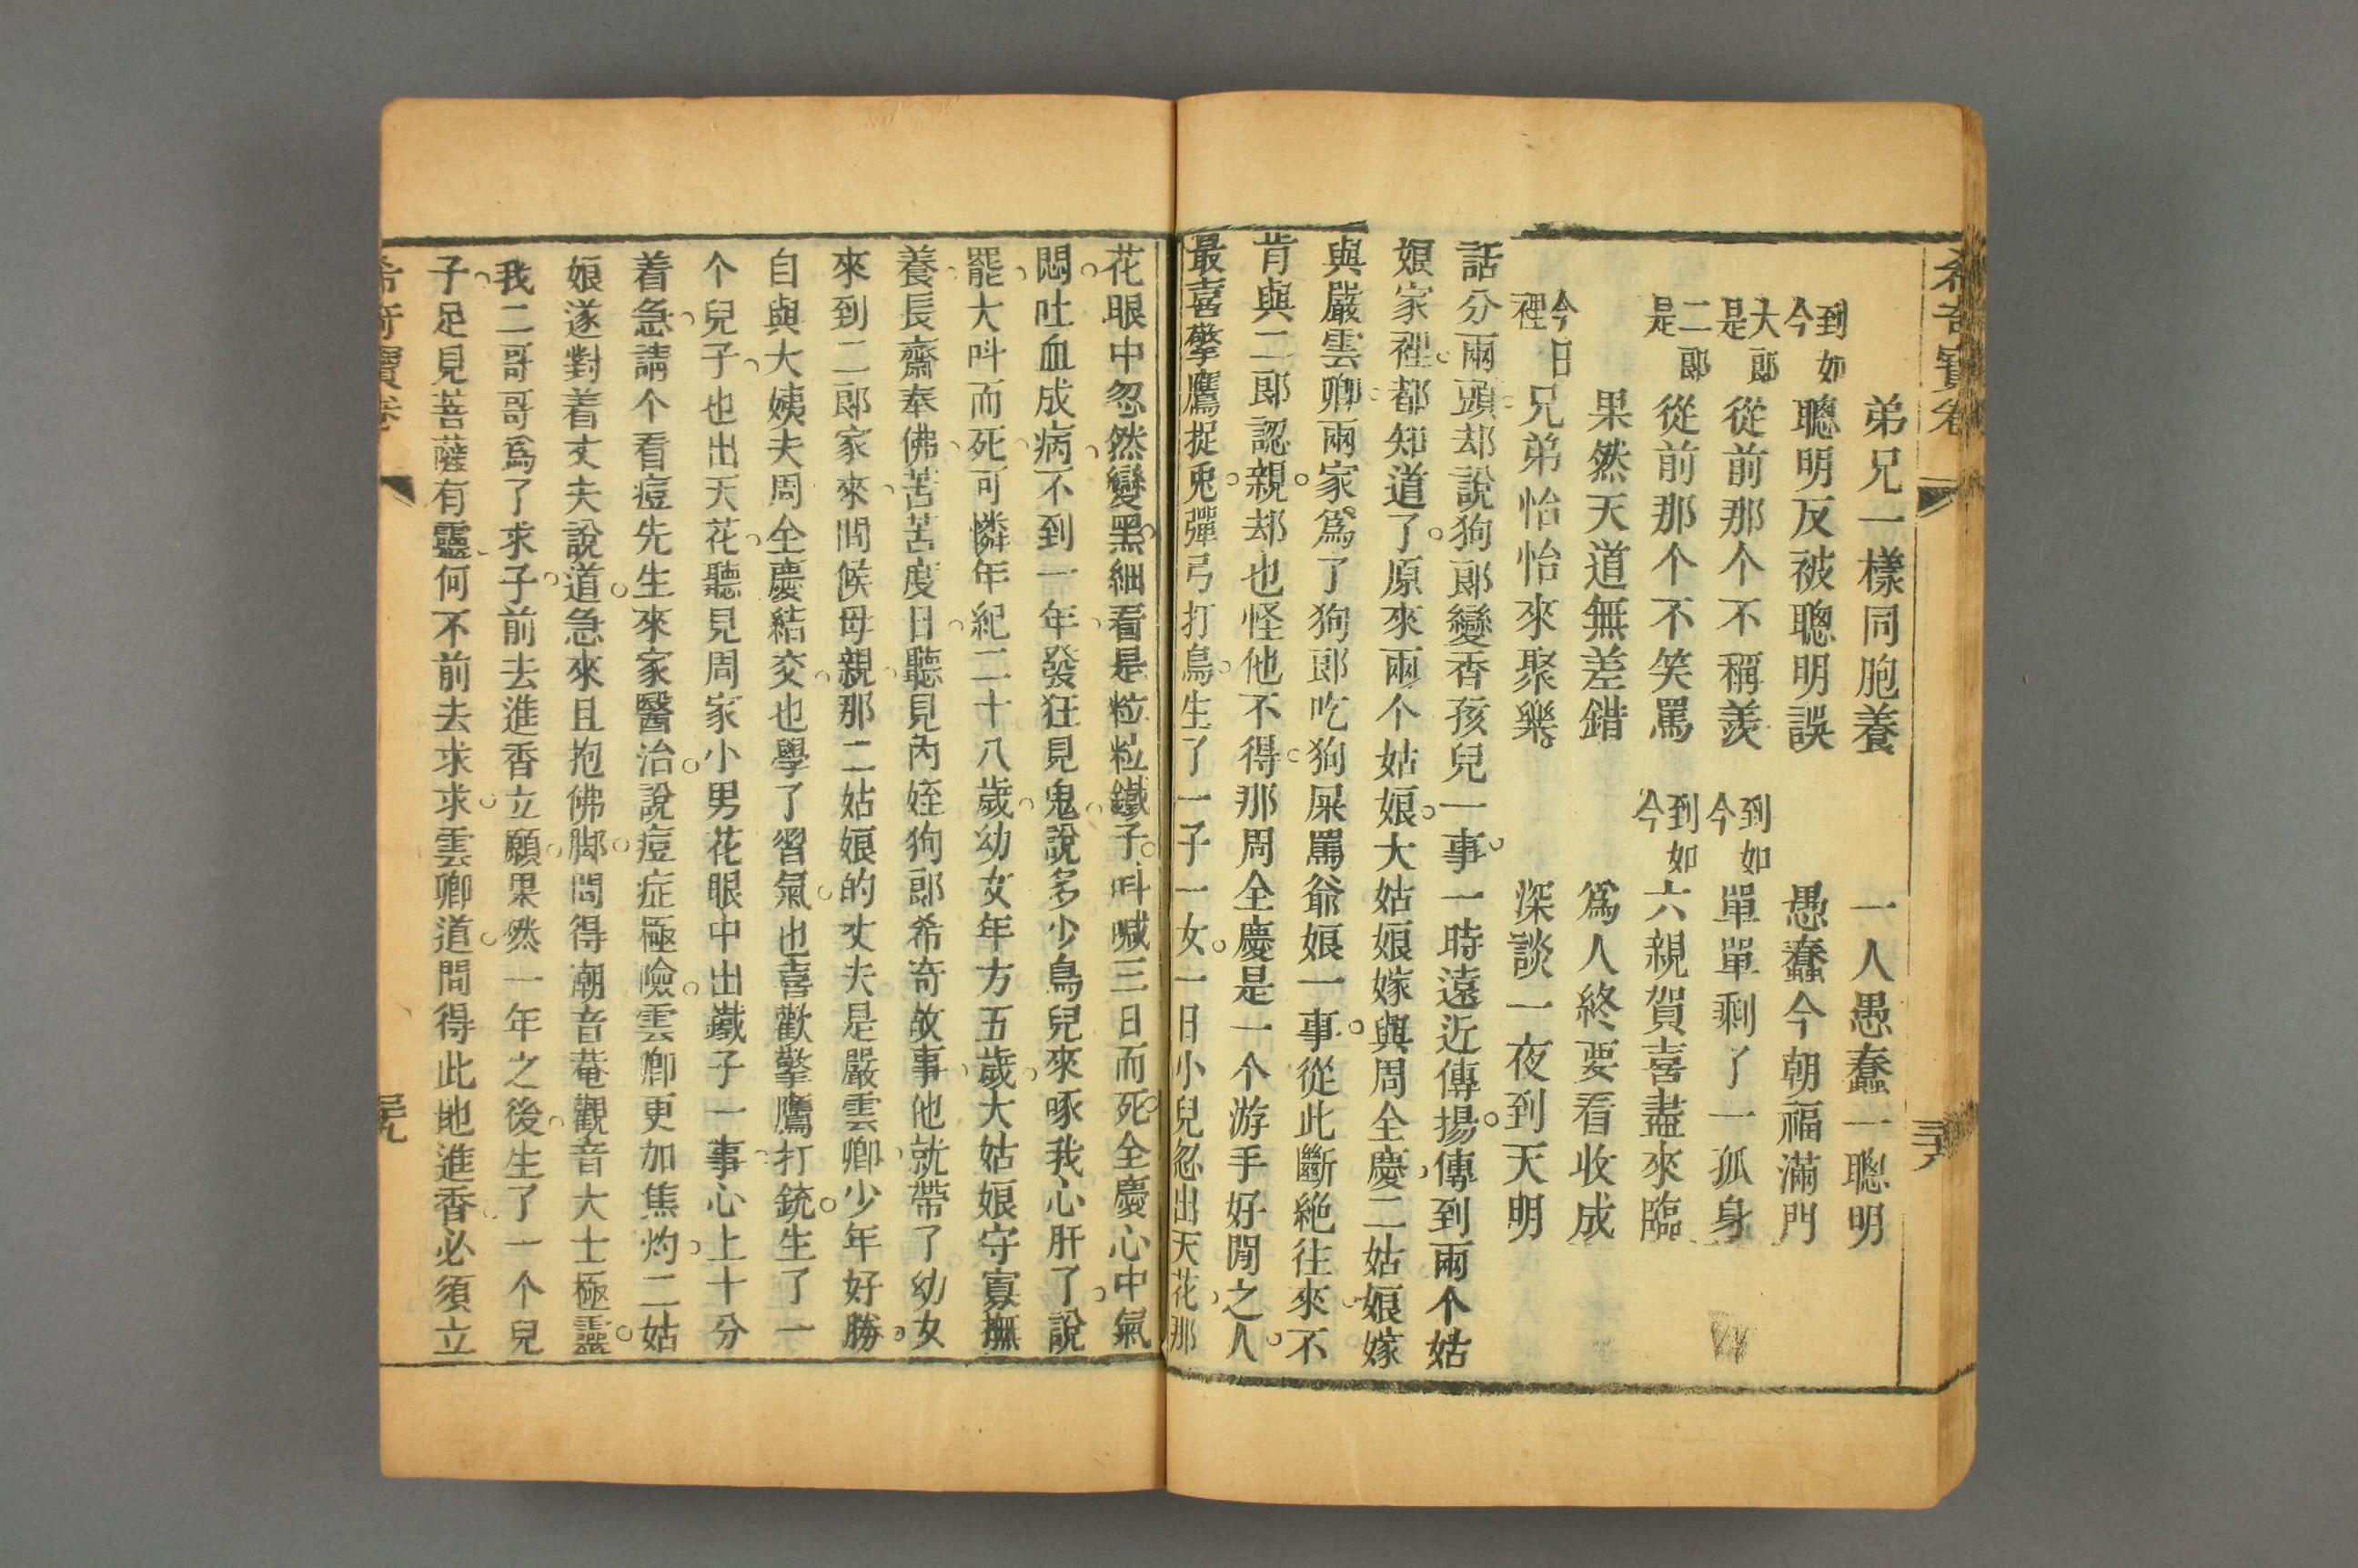 希奇寶卷
三十八
弟兄一樣同胞養 一人愚蠢一聰明
到如今聰明反被聰明誤 愚蠢今朝福滿門
大郎是從前那个不稱羨 到如今單單剩了一孤身
二郎是從前那个不笑罵 到如今六親賀喜盡來臨
果然天道無差錯 爲人終要看收成
今日裡兄弟怡怡來聚樂 深談一夜到天明
話分兩頭却說狗郎變香孩兒一事一時遠近傳揚傳到兩个姑
娘家裡都知道了原來兩个姑娘大姑娘嫁與周全慶二姑娘嫁
與嚴雲卿兩家爲了狗郎吃狗屎罵爺娘一事從此斷絶往來不
肯與二郎認親却也怪他不得那周全慶是一个游手好閒之人
最喜擎鷹捉兎彈弓打鳥生了一子一女一日小兒忽出天花那
花眼中忽然變黑細看是粒粒鐵子呌喊三日而死全慶心中氣
悶吐血成病不到一年發狂見鬼說多少鳥兒來啄我心肝了說
罷大呌而死可憐年紀二十八歲幼女年方五歲大姑娘守寡撫
養長齋奉佛苦苦度日聽見內姪狗郎希奇故事他就帶了幼女
來到二郎家來問候母親那二姑娘的丈夫是嚴雲卿少年好勝
自與大姨夫周全慶結交也學了習氣也喜歡擎鷹打銃生了一
个兒子也出天花聽見周家小男花眼中出鐵子一事心上十分
着急請个看痘先生來家醫治說痘症極險雲卿更加焦灼二姑
娘遂對着丈夫說道急來且抱佛脚問得潮音菴觀音大士極靈
我二哥哥爲了求子前去進香立願果然一年之後生了一个兒
子足見菩薩有靈何不前去求求雲卿道問得此地進香必須立
希奇寶卷
三十九